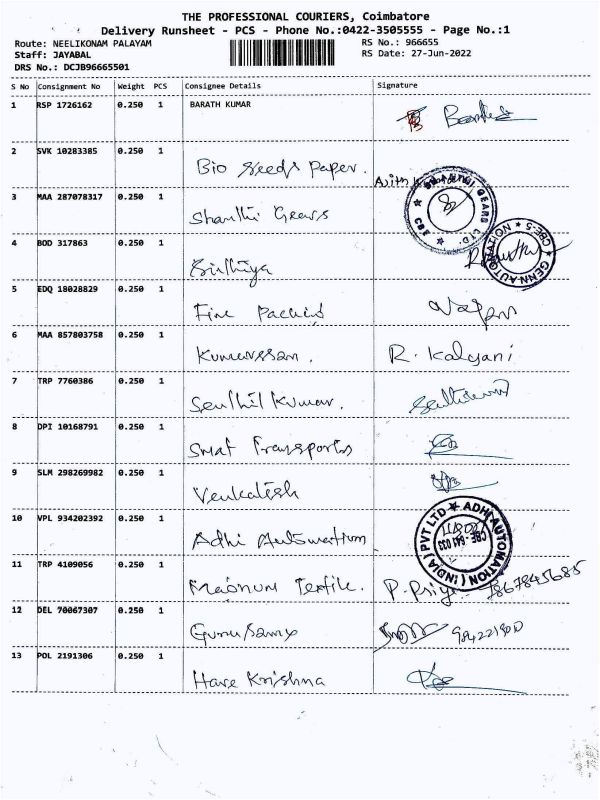 THE PROFESSIONAL COURIERS, Coimbatore
Delivery Runsheet - PCS - Phone No.:0422-3505555 - Page No.:1
Route: NEELIKONAM PALAYAM RS No.: 966655
Staff: JAYABAL RS Date: 27-Jun-2022
DRS No.: DCJB96665501
S No Consignment No Weight PCS Consignee Details Signature
1 RSP 1726162 0.250 1 BARATH KUMAR
2 SVK 10283385 0.250 1
Bio Seeds Paper.
3 MAA 287078317 0.250 1
Shanthi Gears
4 BOD 317863 0.250 1
5 EDQ 18028829 0.250 1
Fine
6 MAA 857803758 0.250 1
R. Kalyani
7 TRP 7760386 0.250 1
Senthil Kumar.
8 DPI 10168791 0.250 1
Smat Transports
9 SLM 298269982 0.250 1
Venkatesh
10 VPL 934202392 0.250 1
ADHI AUTOMATION (INDIA) PVT LTD
Adhi Automation
11 TRP 4109056 0.250 1
Textile. P. Priya
12 DEL 70067307 0.250 1
Gurusamy
13 POL 2191306 0.250 1
Hare Krishna